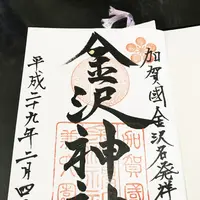 加賀國金沢名発祥
金沢神社
平成二十九年二月四